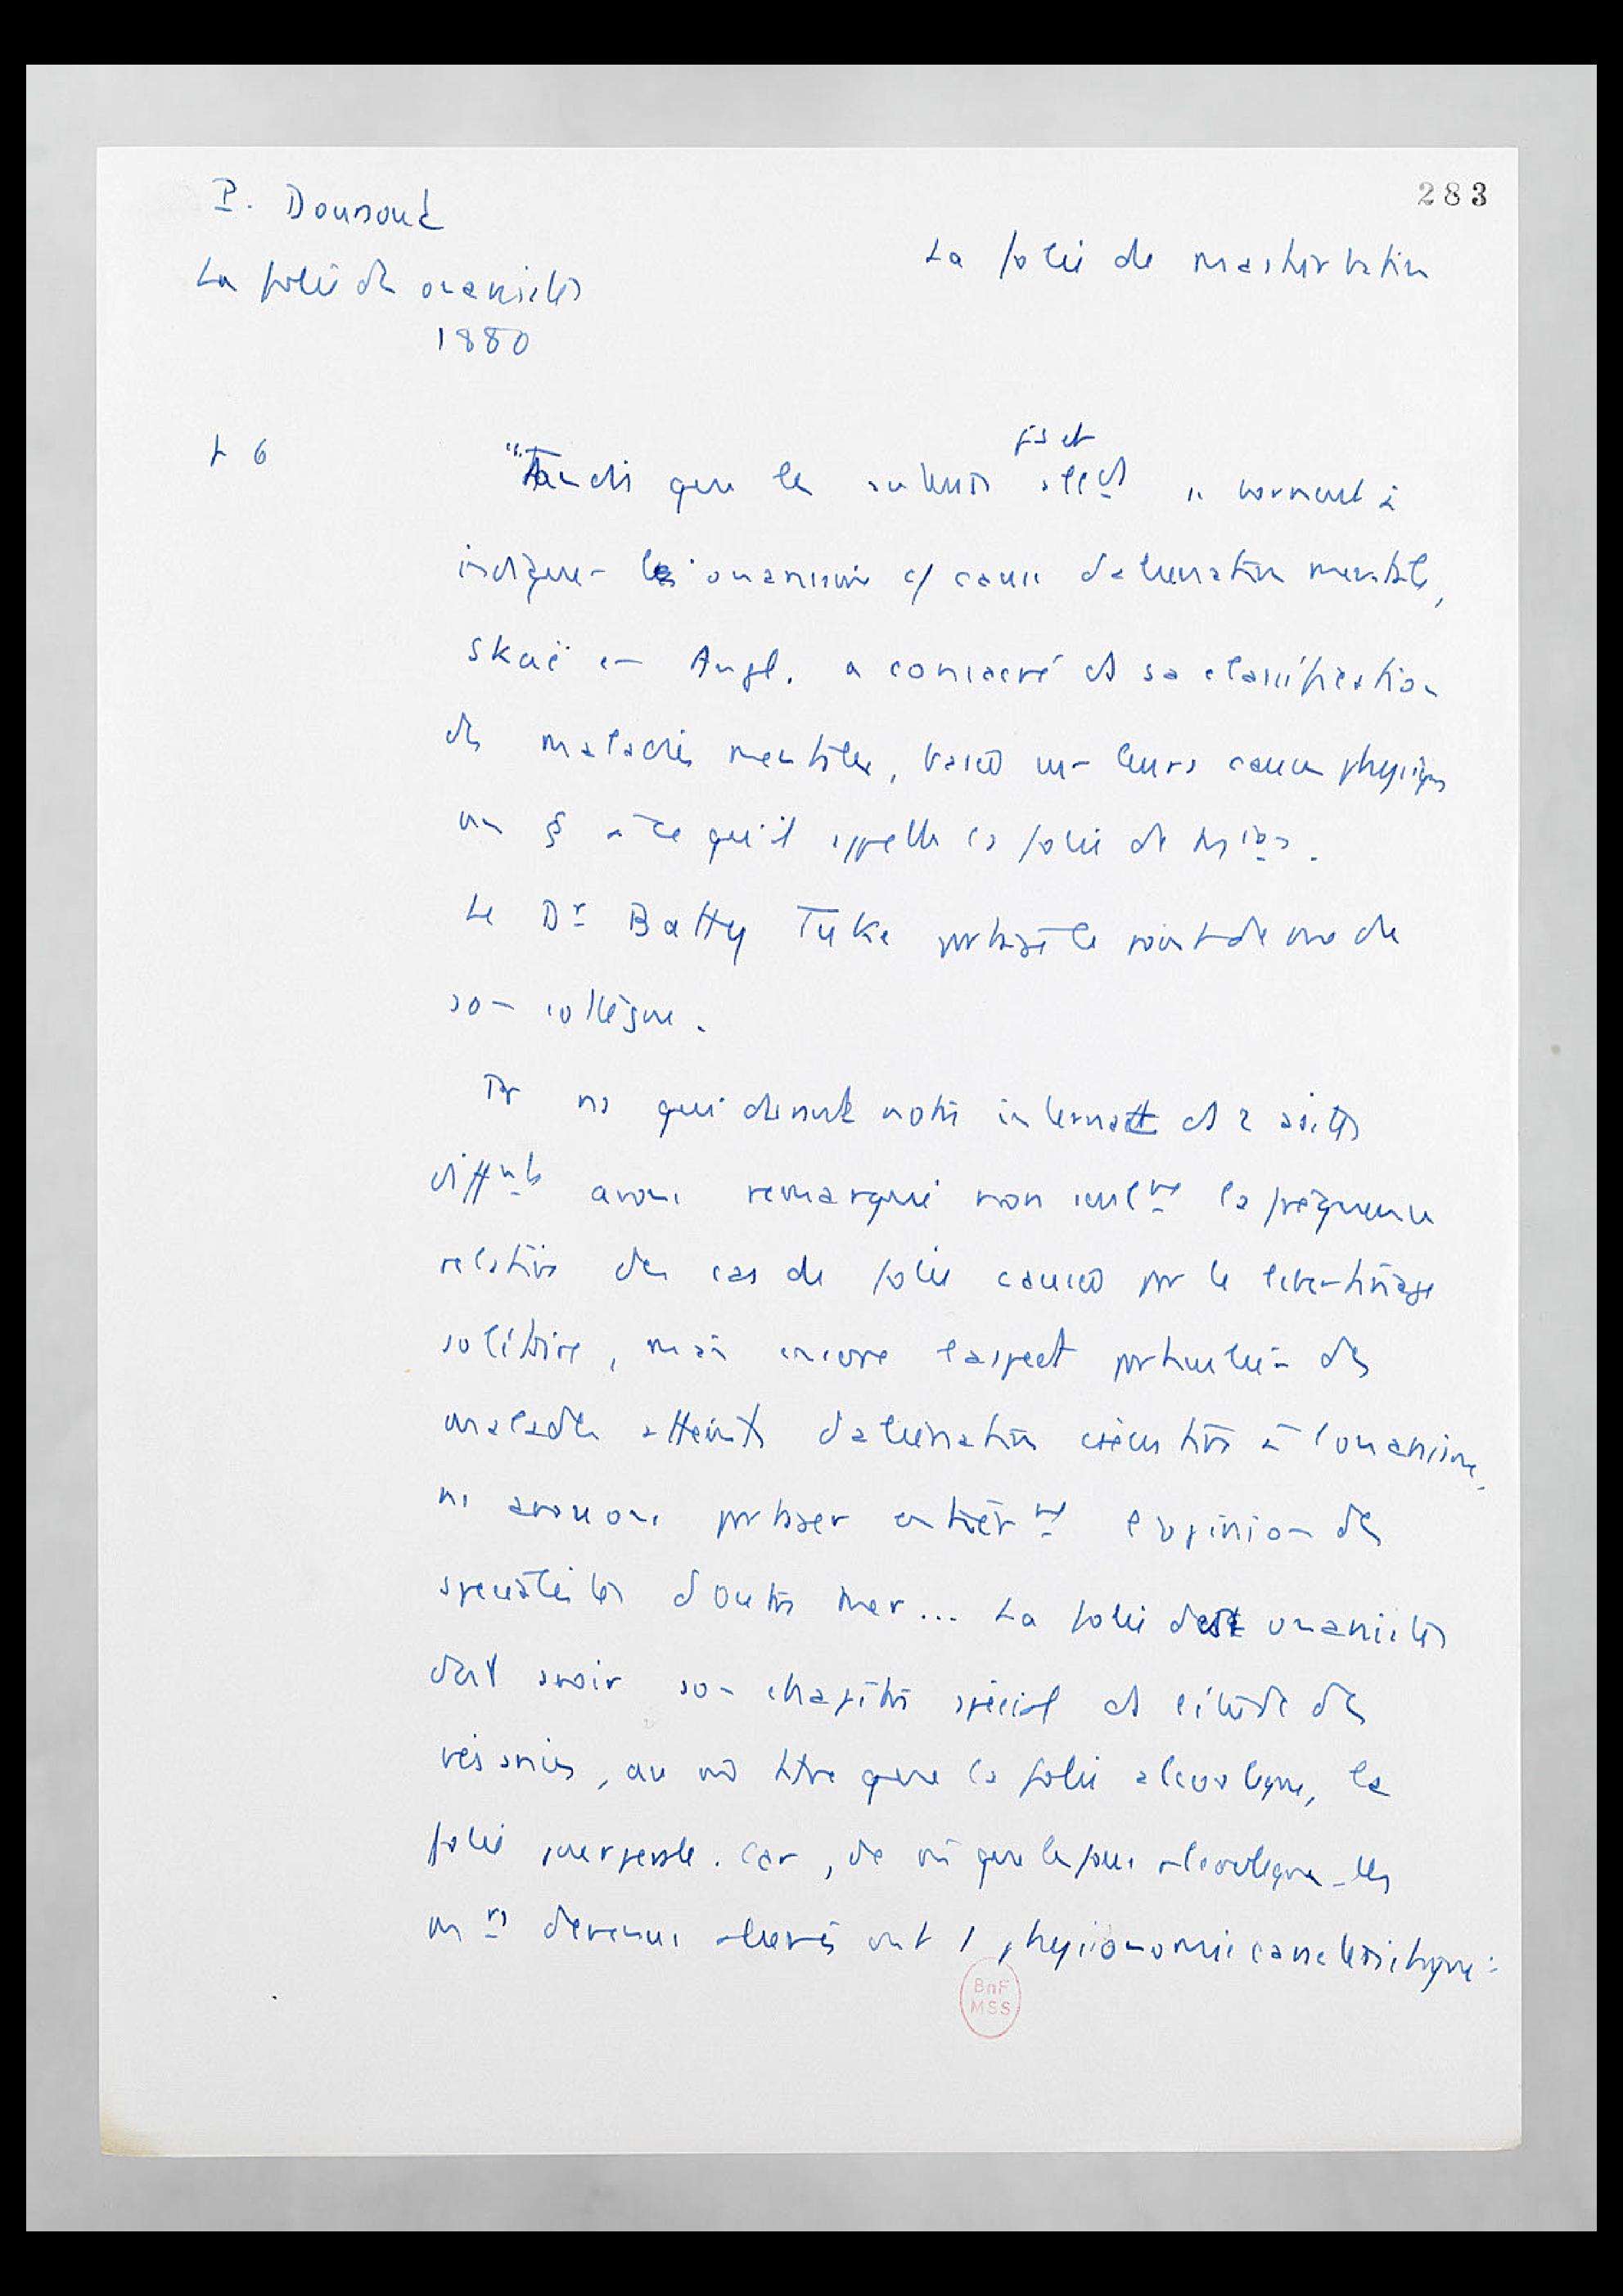 283
P. Doussout
La folie de la masturbation
La folie des onanistes
1880
p 6
fs et
"Tandis que les auteurs alleds se bornent à
indiquer l'onanisme c/ cause d'aliénation mentale,
Skaë en Angl. a consacré ds sa classification
des maladies mentales, basée sur leurs causes physiques
un § à ce qu'il appelle la folie de
Le Dr Batty Tuke partage le point de vue de
son collègue.
Pr ns qui durant notre internat ds 2 asiles
diffnts avons remarqué non seulmt la fréquence
relative des cas de folie causés par le libertinage
solitaire, mais encore l'aspect particulier des
malades atteints d'aliénation consécutive à l'onanisme,
ns avouons partager entièrmt l'opinion des
spécialistes d'outre mer... La folie des onanistes
doit avoir son chapitre spécial ds l'étude des
vésanies, au mê titre que la folie alcoolique, la
folie puerpérale. Car, de mê que les fous alcooliques, les
mrs devenus aliénés ont 1 physionomie caractéristique :
BnF
MSS